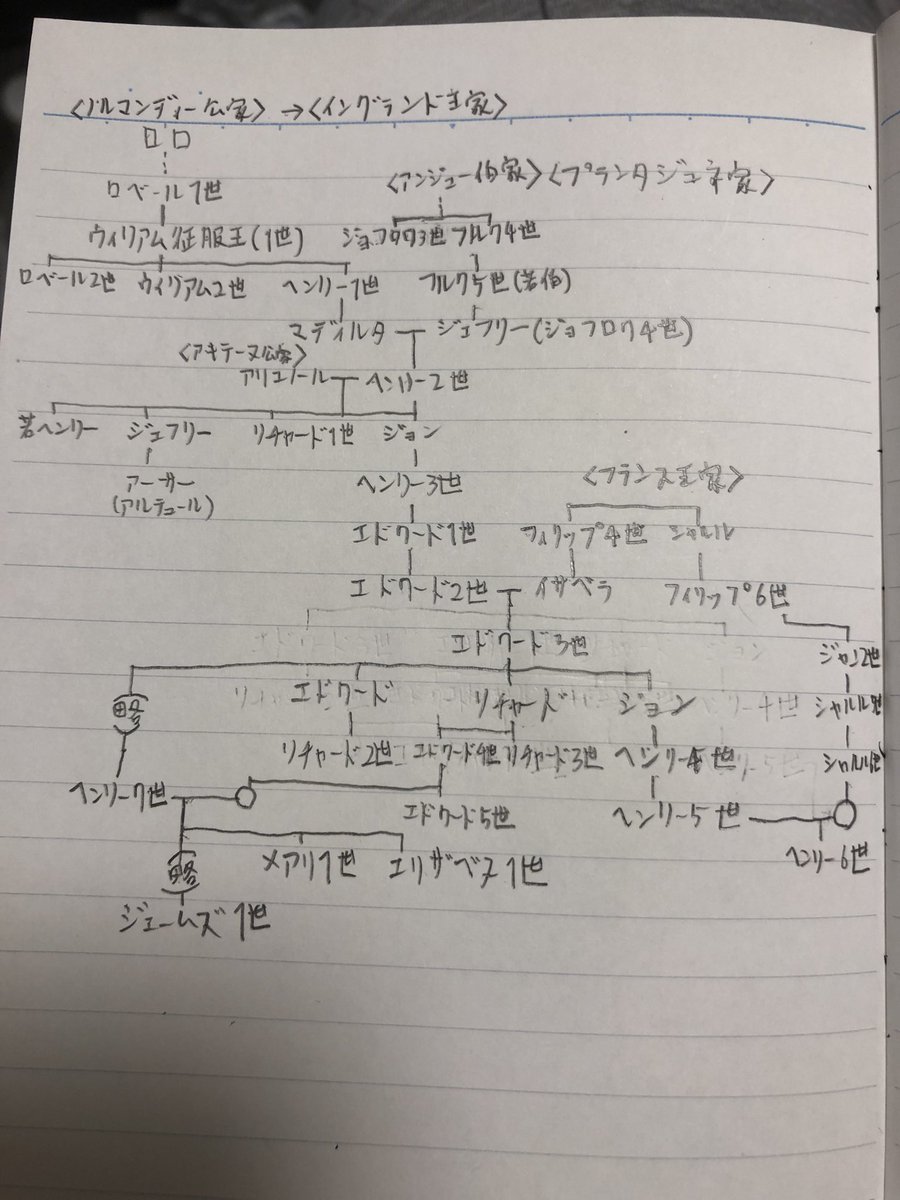 〈ノルマンディー公家〉→〈イングランド王家〉
ロロ
〈アンジュー伯家〉〈プランタジュネ家〉
ロベール1世
ウィリアム征服王(1世)
ジョフロワ3世 フルク4世
ロベール2世 ウィリアム2世 ヘンリー1世
フルク5世(若伯)
マティルダ
ジェフリー(ジョフロワ4世)
〈アキテーヌ公家〉
アリエノール ヘンリー2世
若ヘンリー ジェフリー リチャード1世 ジョン
アーサー
(アルテュール)
ヘンリー3世
〈フランス王家〉
エドワード1世 フィリップ4世 シャルル
エドワード2世 イザベラ フィリップ6世
エドワード3世
ジャン2世
略
エドワード リチャード ジョン
シャルル
リチャード2世 エドワード4世 リチャード3世 ヘンリー4世
シャルル
ヘンリー7世
エドワード5世 ヘンリー5世
メアリ1世 エリザベス1世
ヘンリー6世
略
ジェームズ1世